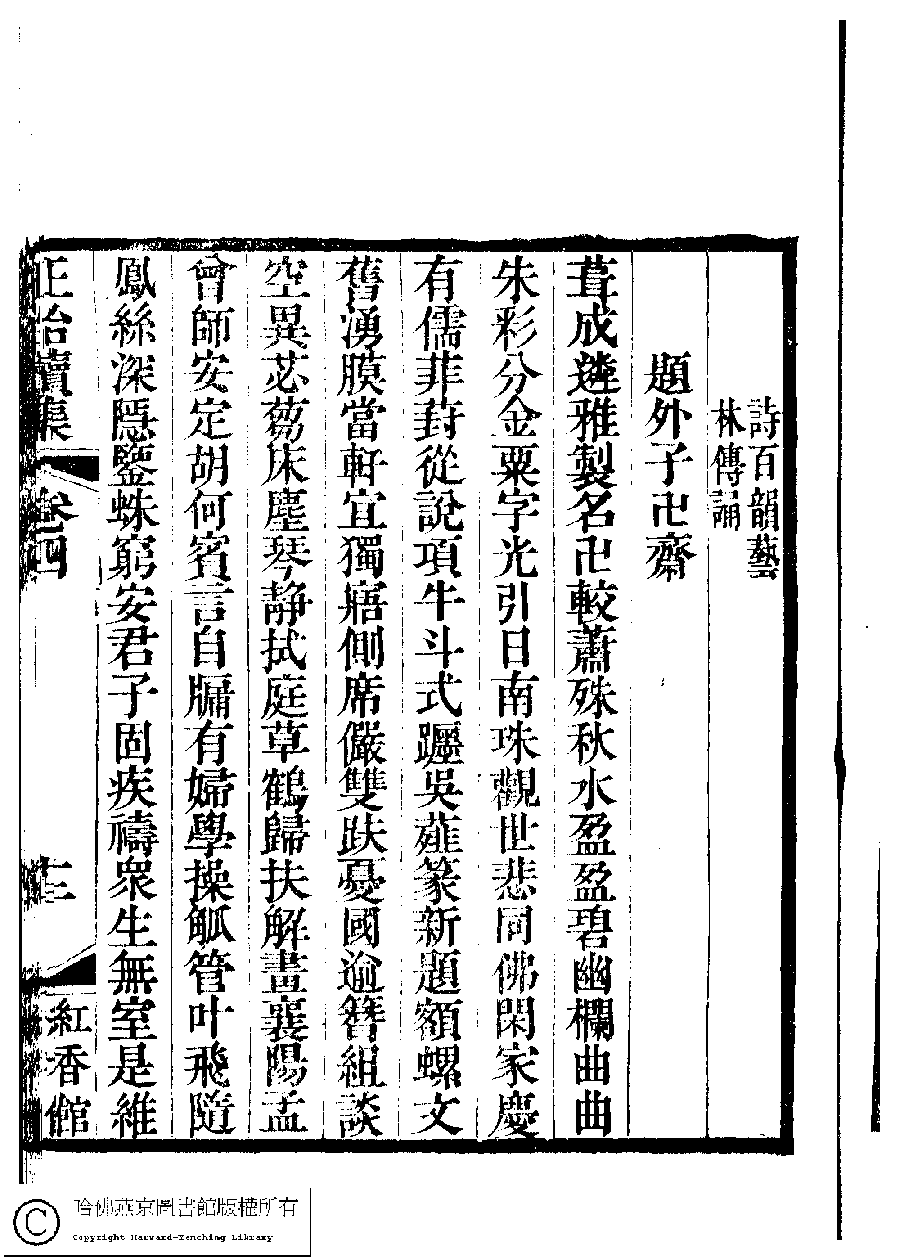 詩百韻藝
林傳誦
題外子卍齋
葺成邃雅製名卍較蕭殊秋水盈盈碧幽欄曲曲
朱彩分金粟字光引日南珠觀世悲同佛閑家慶
有儒菲葑從說項牛斗式躔吳薤篆新題額螺文
舊湧膜當軒宜獨寤側席儼雙趺憂國逾簪組談
空異苾蒭床塵琴静拭庭草鶴歸扶解畫襄陽孟
曾師安定胡何賓言自牖有婦學操觚管叶飛隨
鳳絲深隱鑒蛛窮安君子固疾禱衆生無室是維
正始續集
卷四
十三
紅香館
哈佛燕京圖書館版權所有
Copyright Harvard-Yenching Library